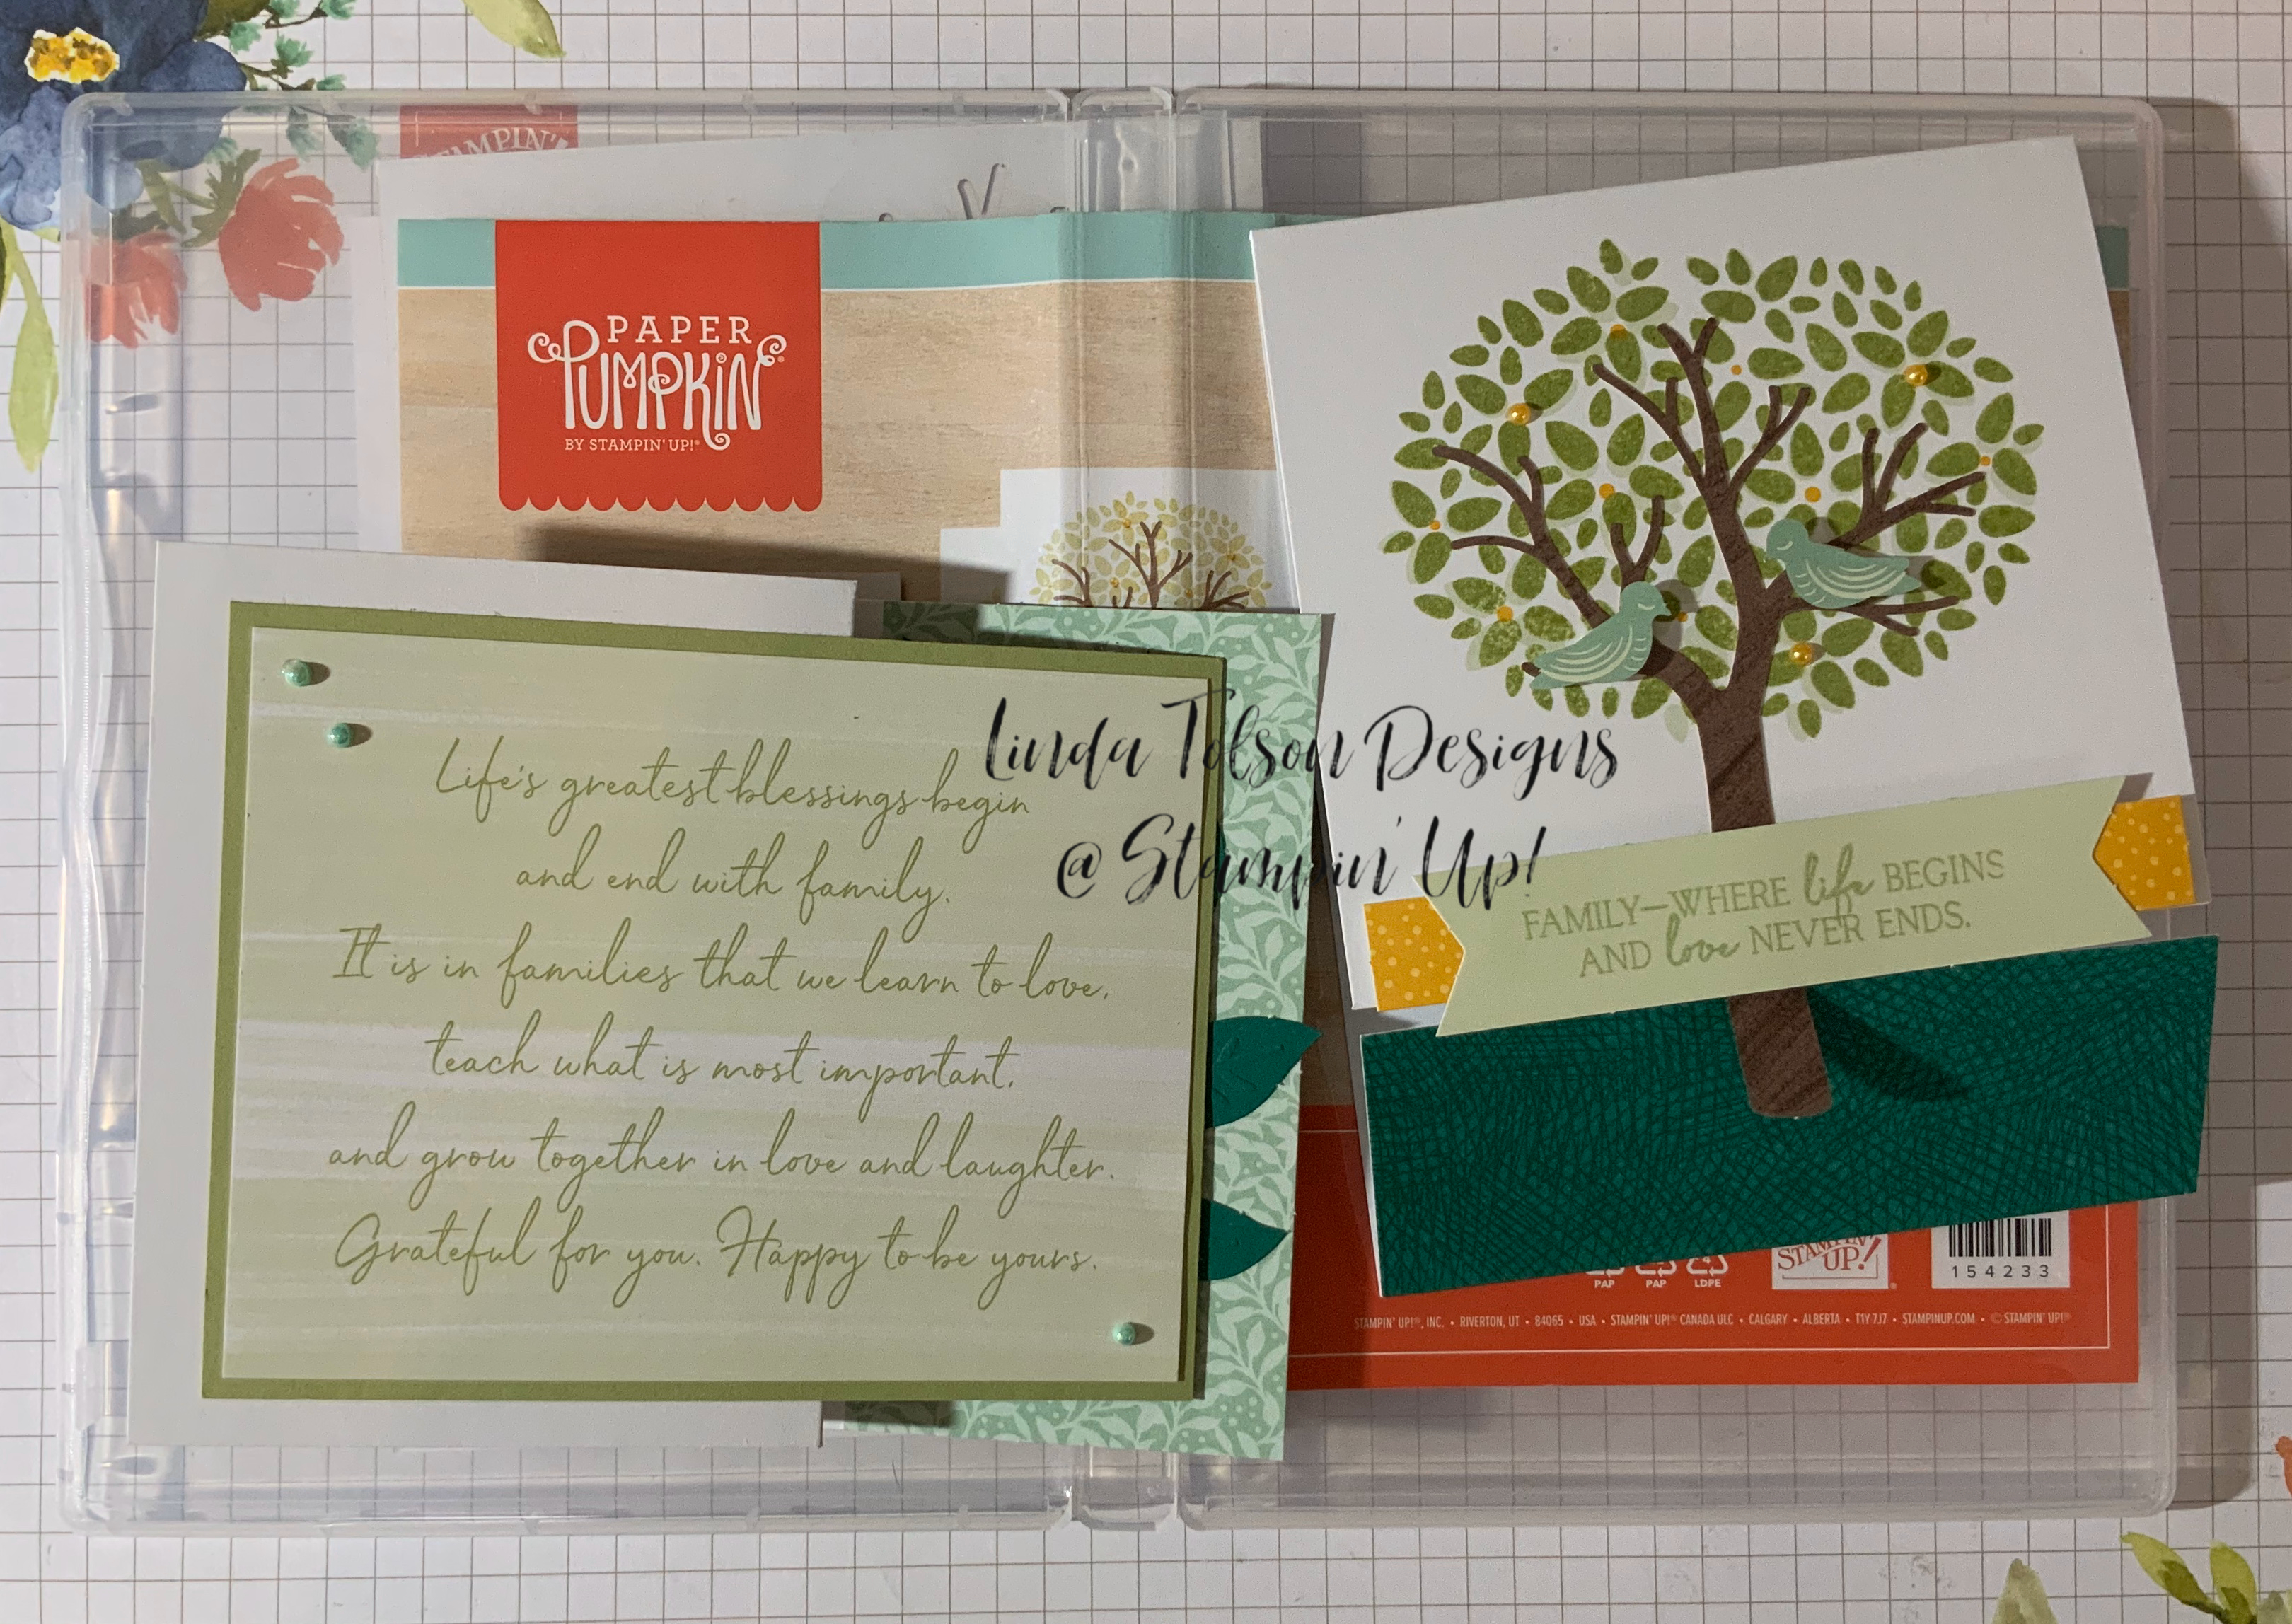 STAMPIN'
PAPER
PUMPKIN®
BY STAMPIN' UP!®
Life's greatest blessings begin
and end with family.
It is in families that we learn to love,
teach what is most important,
and grow together in love and laughter.
Grateful for you. Happy to be yours.
Linda Tolson Designs
@ Stampin' Up!
FAMILY—WHERE life BEGINS
AND love NEVER ENDS.
PAP
PAP
LDPE
STAMPIN'
UP!®
154233
STAMPIN' UP!®, INC. • RIVERTON, UT • 84065 • USA • STAMPIN' UP!® CANADA ULC • CALGARY • ALBERTA • T1Y 7J7 • STAMPINUP.COM • © STAMPIN' UP!®